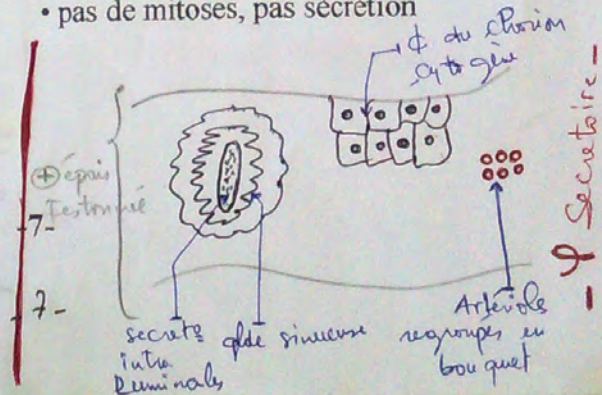 • pas de mitoses, pas sécrétion
¢ du chorion
cytogène
⊕ épais
Festonné
-7-
7-
secrets
intra
luminales
glde sinueuse
Artérioles
regroupés en
bouquet
- φ Secretoire -